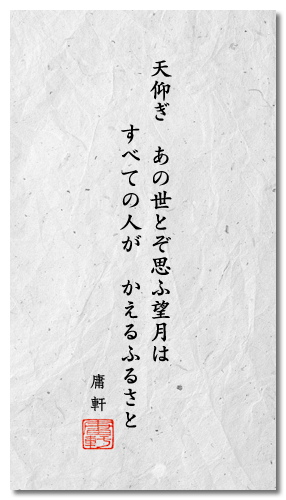 天仰ぎ　あの世とぞ思ふ望月は
すべての人が　かえるふるさと
庸軒
庸軒